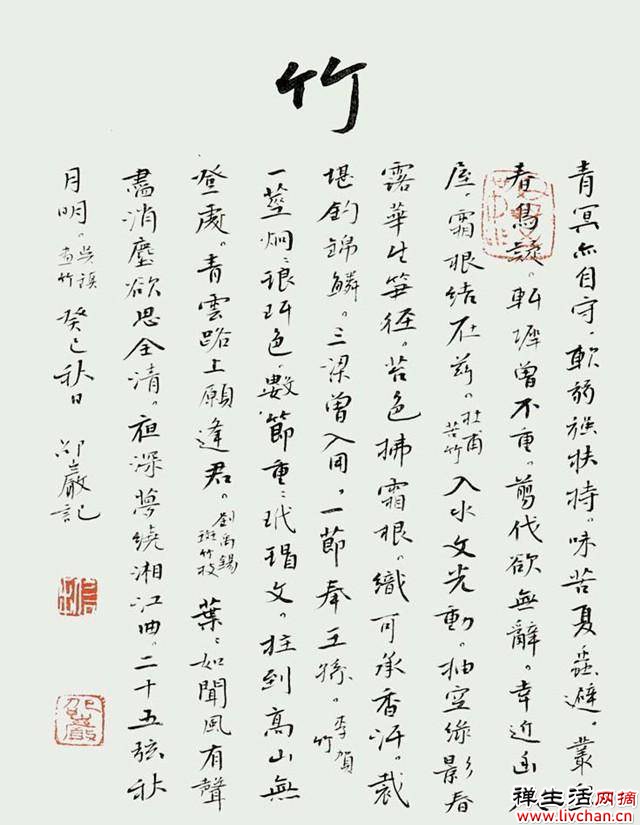 竹
青冥亦自守，軟弱強扶持。味苦夏蟲避，叢卑
春鳥疑。軒墀曾不重。剪伐欲無辭。幸近幽人
屋，霜根結在茲。杜甫苦竹 入水文光動。抽空綠影春
露華生筍徑。苔色拂霜根。織可承香汗。裁
堪釣錦鱗。三梁曾入用，一節奉王孫。李賀竹
一莖炯炯琅玕色，數節重重玳瑁文。拄到高山無
登處。青雲路上願逢君。劉禹錫斑竹枝 葉葉如聞風有聲
盡消塵欲思全清。夜深夢繞湘江曲。二十五弦秋
月明。吳鎮畫竹 癸巳秋日 邵巖記
邵巖
禅生活网摘
www.livchan.cn